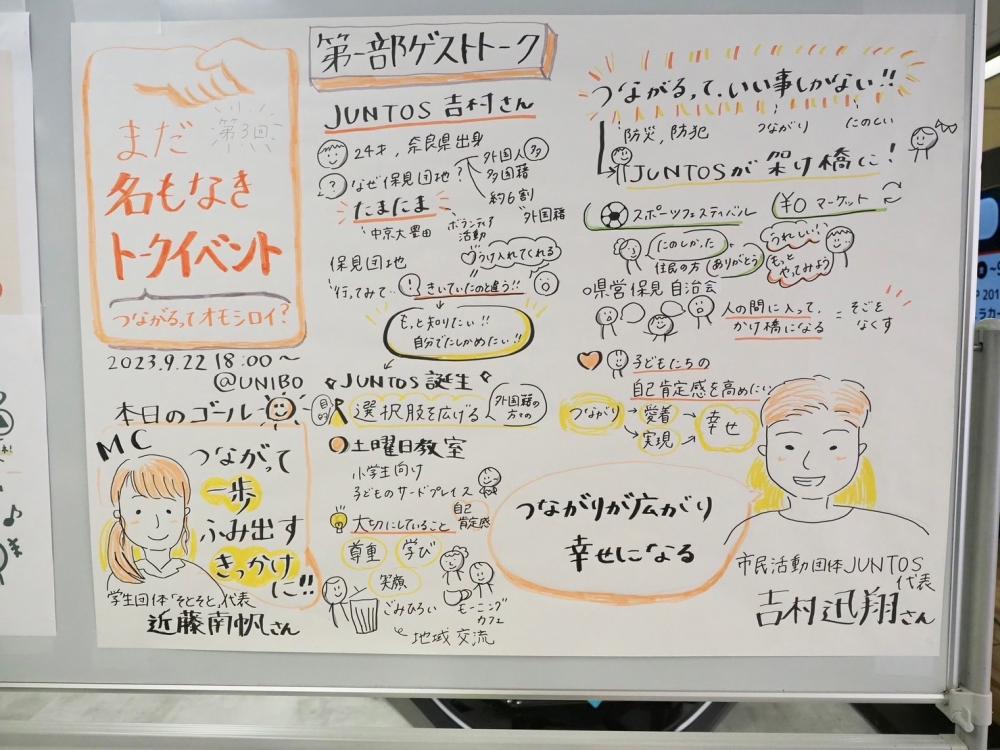 第3回
まだ
名もなき
トークイベント
つながるってオモシロイ?
2023.9.22 18:00〜
@UNIBO
本日のゴール
MC
つながって
一歩
ふみ出す
きっかけ
に!!
学生団体「そとそと」代表
近藤南帆さん
第一部ゲストトーク
JUNTOS 吉村さん
24才,奈良県出身
?なぜ保見団地?
外国人多
多国籍
約6割
外国籍
たまたま
中京大豊田
ボランティア
活動
保見団地
行ってみて…
うけ入れてくれる
! きいていたのと違う!!
もっと知りたい!!
自分でたしかめたい!!
JUNTOS誕生
目的
選択肢を広げる
外国籍の
方々の
土曜日教室
小学生向け
子どものサードプレイス
大切にしていること
自己
肯定感
尊重
学び
笑顔
ごみひろい
モーニング
カフェ
地域交流
つながるって、いい事しかない!!
防災,防犯
つながり
たのしい
JUNTOSが架け橋に!
スポーツフェスティバル
¥0 マーケット
たのしかった
住民の方
ありがとう
うれしい!
もっと
やってみよう
県営保見自治会
人の間に入って,
かけ橋になる
= そごを
なくす
子どもたちの
自己肯定感を高めたい
つながり
愛着
実現
幸せ
つながりが広がり
幸せになる
市民活動団体JUNTOS
代表
吉村迅翔さん